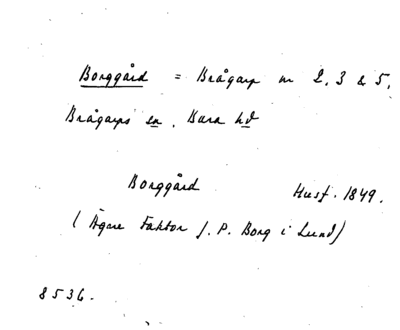 Borggård = Brågarp nr 2, 3 & 5,
Brågarps sn, Bara hd
Borggård Husf. 1849.
(Ägare Faktor J. P. Borg i Lund)
8536.